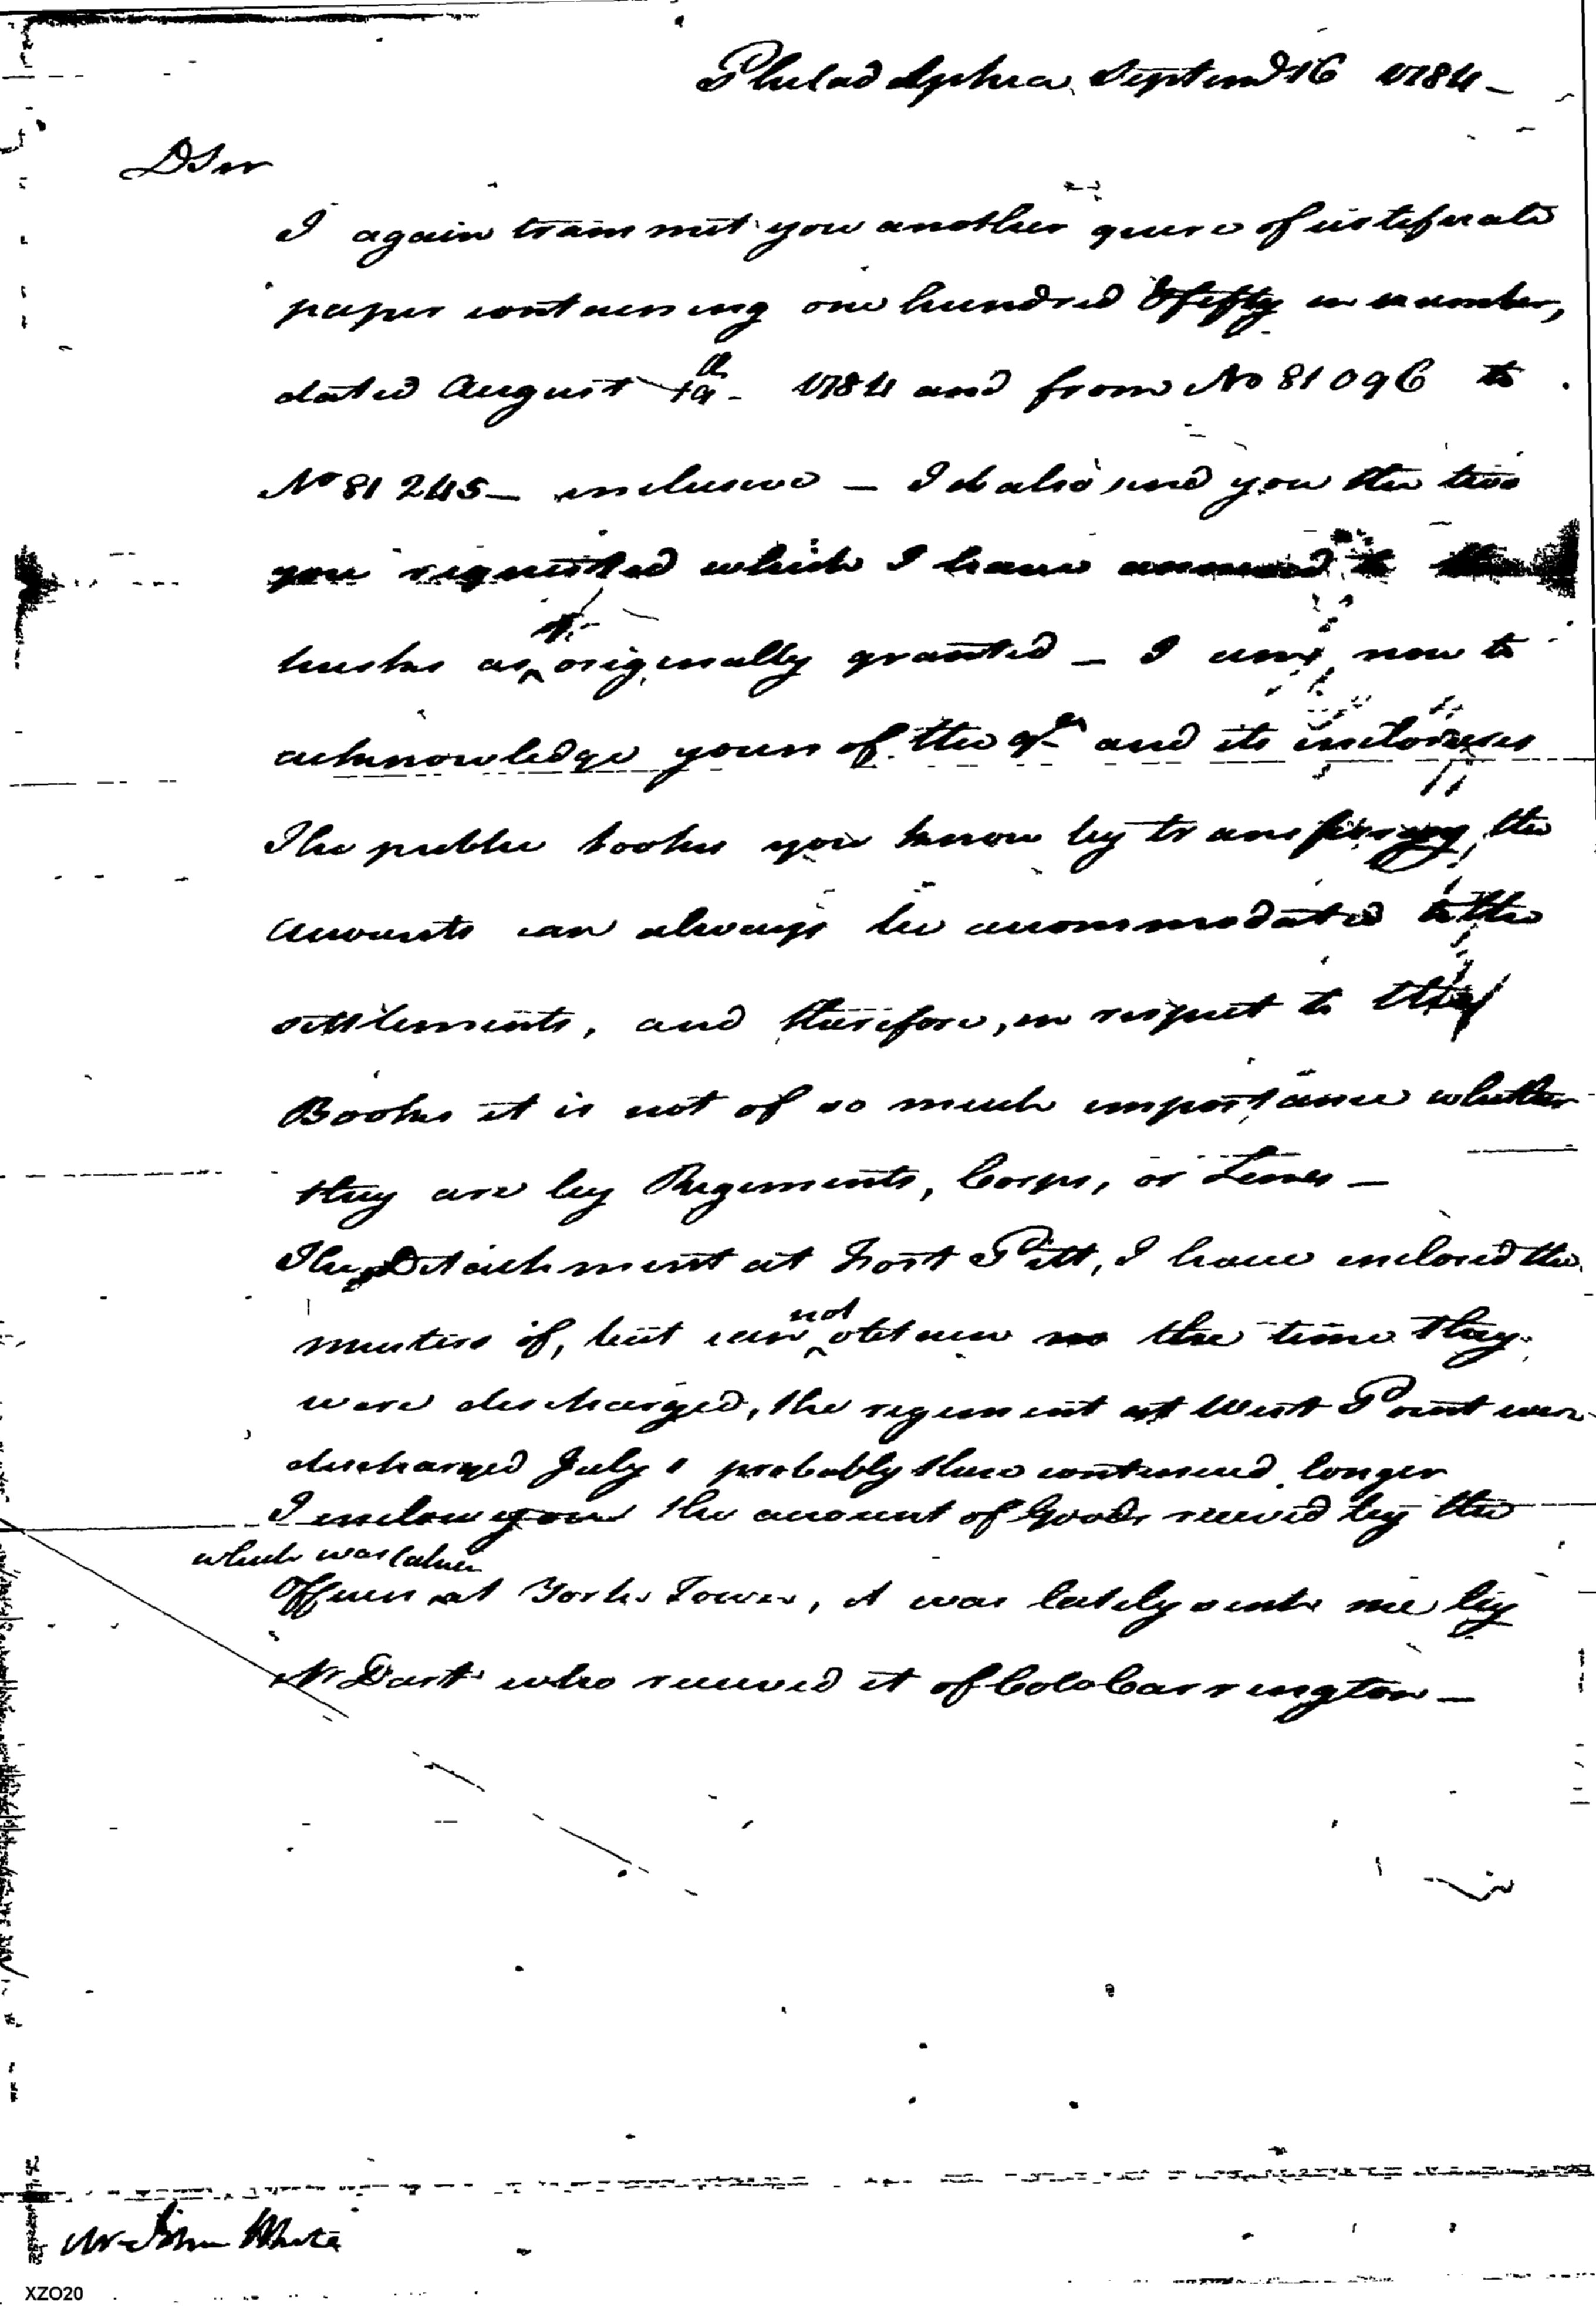 Philadelphia Septemr 16 1784 –
D Sir
I again transmit you another quire of certificate
paper containing one hundred & fifty in number,
dated August 19th 1784 and from No 81096 to
No 81245 – inclusive – I do also send you the two
you requested which I have annexed to the
husks as originally granted – I am now to
acknowledge yours of the 9th and its inclosures
The public books you know by transfering the
accounts can always be accommodated to the
settlements, and therefore, in respect to the
Books it is not of so much importance whether
they are by Regiments, Corps, or Lines –
The Detachment at Fort Pitt, I have enclosed the
musters of, but can not obtain the time they
were discharged, the regiment at West Point was
discharged July 1 probably these continued longer
I enclose you the account of Goods received by the
which was taken
Officers at York Town, it was lately sent me by
Mr Dart who received it of Colo Carrington –
Mr John White
XZO20